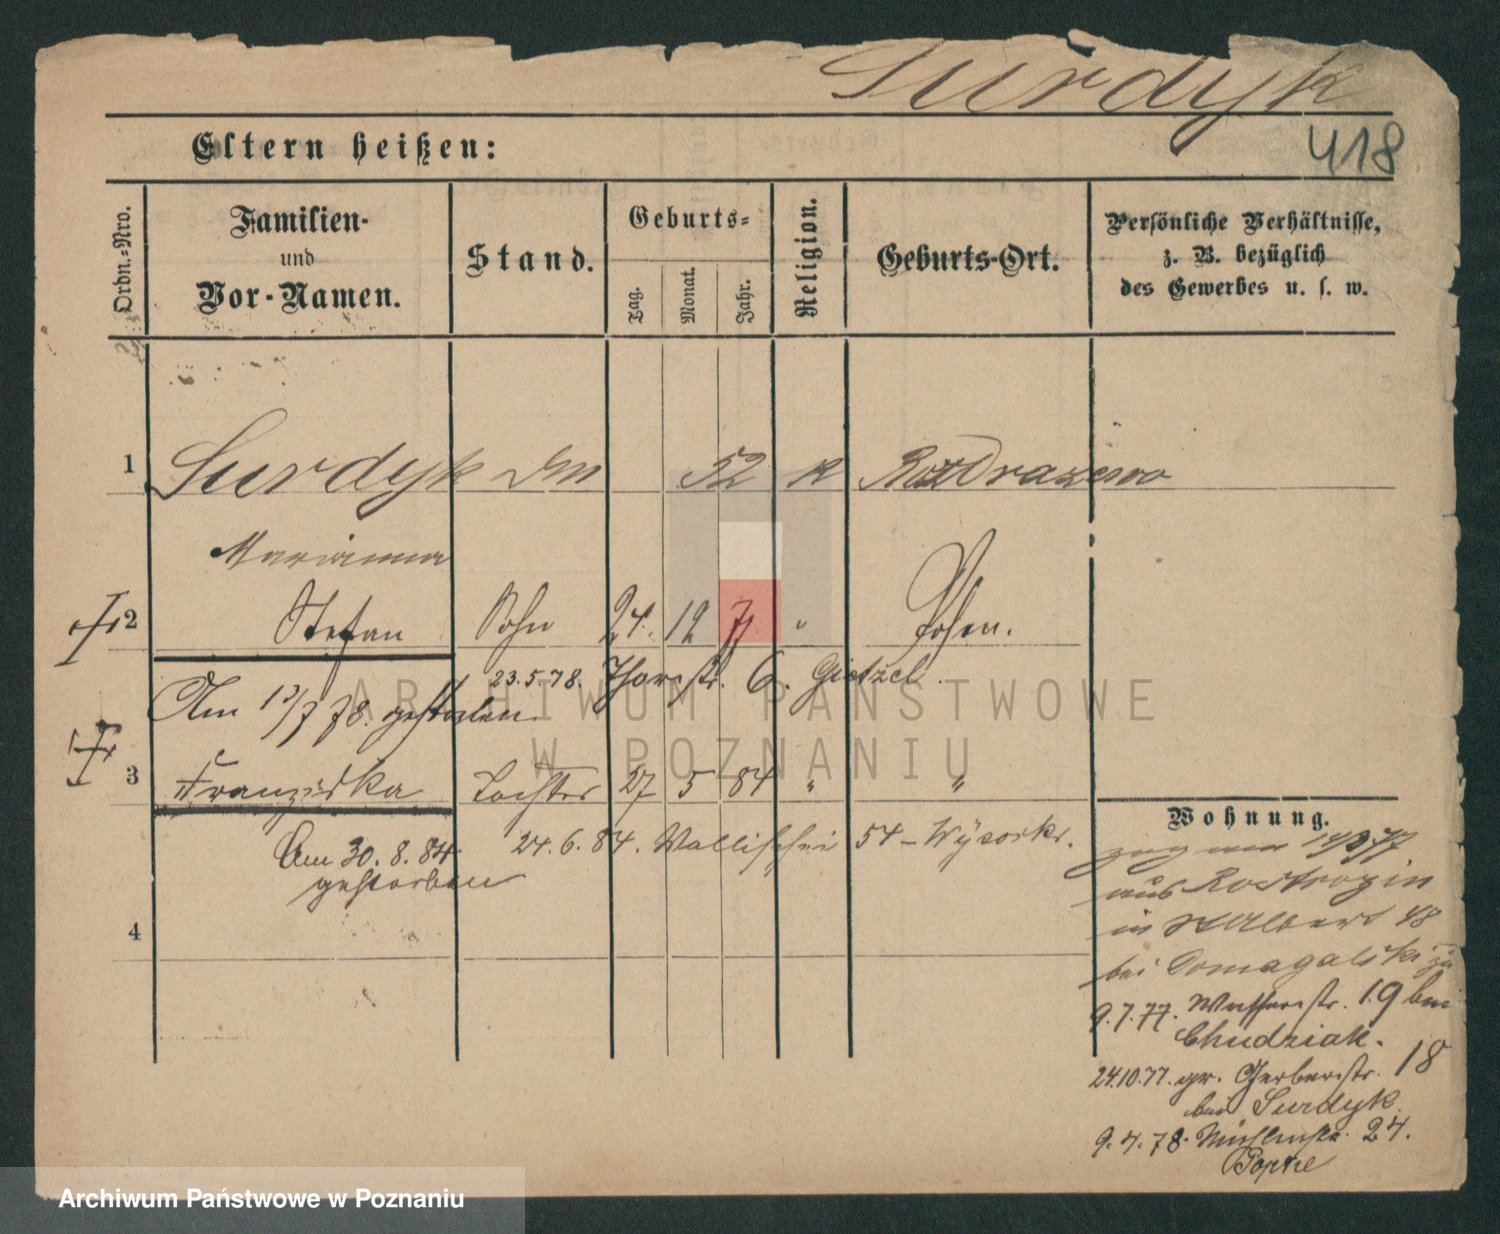 Surdyk
418
Eltern heißen:
Ordn.-Nro.
Familien-
und
Vor-Namen.
Stand.
Geburts-
Tag.
Monat.
Jahr.
Religion.
Geburts-Ort.
Persönliche Verhältnisse,
z. B. bezüglich
des Gewerbes u. s. w.
1 Surdyk 52 k Rozdrazewo
Marianna
2 Stefan Sohn 24. 12 77 " Posen.
23.5.78. Thorstr. 6. Gietzel.
Am 13/7 78. gestorben
3 Franziska Tochter 27 5 84 " "
Am 30. 8. 84 24. 6. 84. Wallischei 54 - Wysocki.
gestorben
4
Wohnung.
zug am
aus Rostrozin
in St Albert 48
bei Domagalski
9.7.77. Wasserstr. 19 bei
Chudziak.
24.10.77. gr. Gerberstr. 18
bei Surdyk
9.4.78. Mühlenstr. 24.
ARCHIWUM PAŃSTWOWE
W POZNANIU
Archiwum Państwowe w Poznaniu